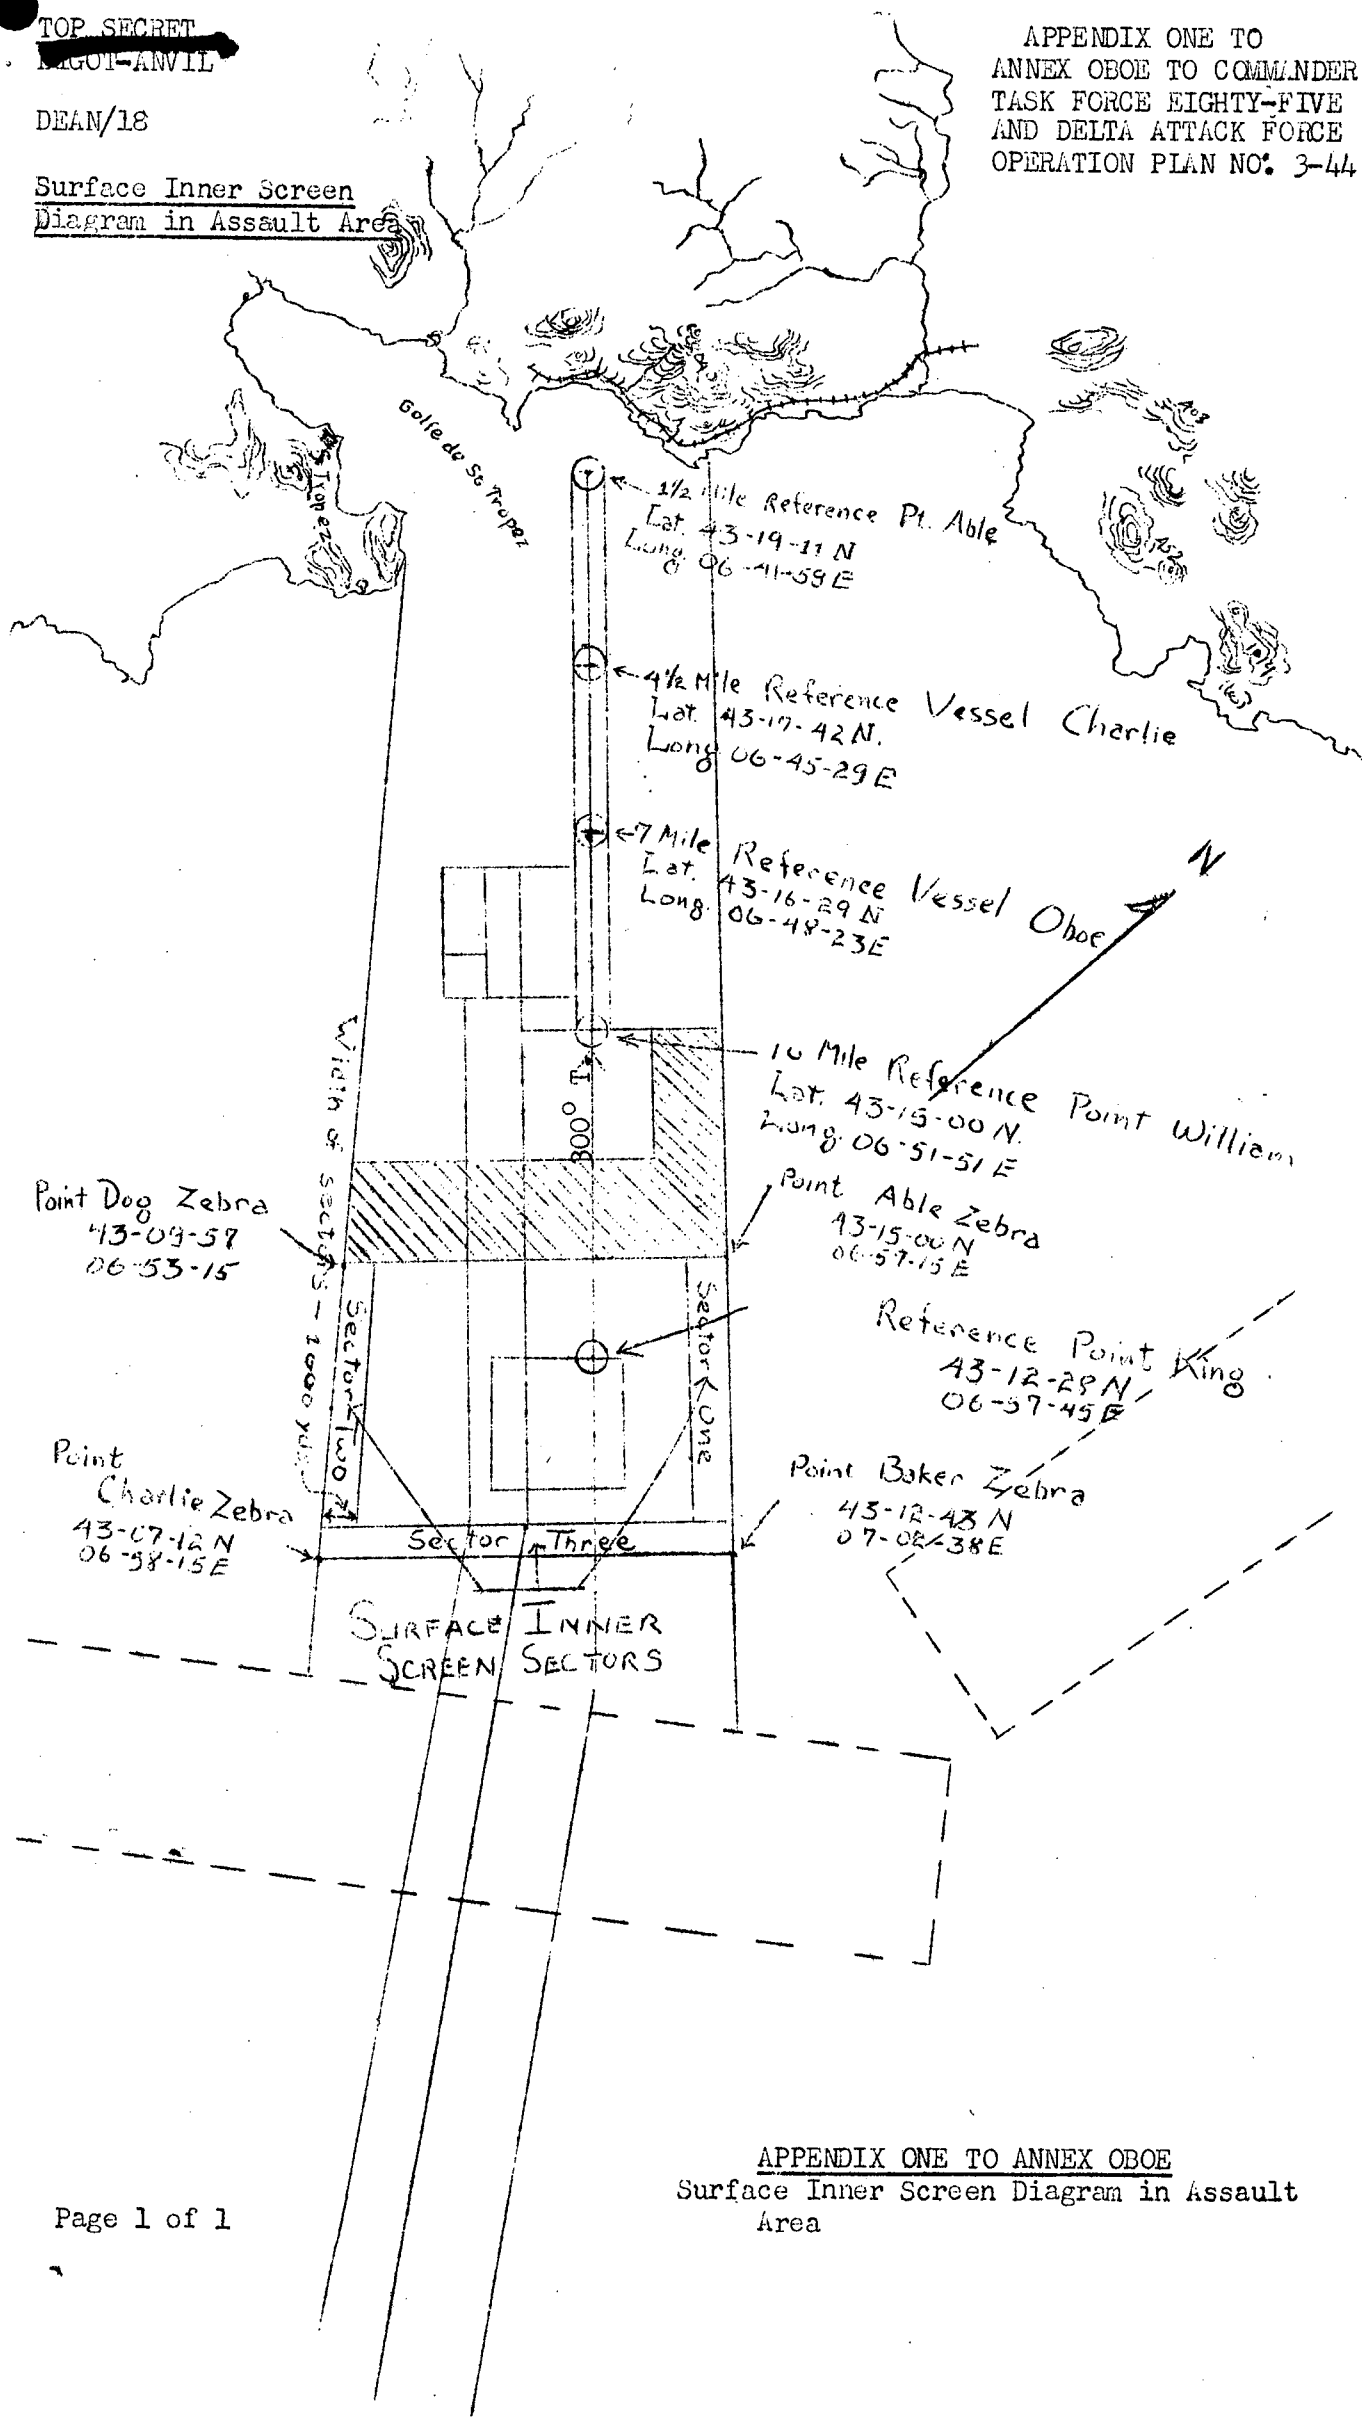 TOP SECRET
BIGOT-ANVIL
DEAN/18
Surface Inner Screen
Diagram in Assault Area
APPENDIX ONE TO
ANNEX OBOE TO COMMANDER
TASK FORCE EIGHTY-FIVE
AND DELTA ATTACK FORCE
OPERATION PLAN NO. 3-44
Golfe de St Tropez
St Tropez
1½ Mile Reference Pt. Able
Lat. 43-19-11 N
Long. 06-41-59 E
4½ Mile Reference Vessel Charlie
Lat. 43-17-42 N.
Long 06-45-29 E
7 Mile Reference Vessel Oboe
Lat. 43-16-29 N
Long. 06-48-23 E
N
10 Mile Reference Point William
Lat. 43-15-00 N.
Long. 06-51-51 E
300° T.
Width of sectors - 1000 yds.
Point Dog Zebra
43-09-57
06-53-15
Point Able Zebra
43-15-00 N
06-57-15 E
Sector Two
Sector One
Reference Point King
43-12-29 N
06-57-45 E
Point
Charlie Zebra
43-07-12 N
06-58-15 E
Point Baker Zebra
43-12-43 N
07-02-38 E
Sector Three
SURFACE INNER
SCREEN SECTORS
APPENDIX ONE TO ANNEX OBOE
Surface Inner Screen Diagram in Assault
Area
Page 1 of 1